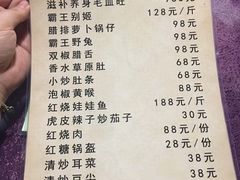 滋补养身毛血旺
霸王别姬 128元/斤
腊排萝卜锅仔 98元
霸王野兔 98元
双椒腊舌 98元
香水草原肚 68元
小炒肚条 68元
泡椒黄喉 88元
红烧娃娃鱼 188元/斤
虎皮辣子炒茄子 30元
红烧肉 88元/份
红糖锅盔 28元/份
清炒耳菜 38元
清炒豆尖 38元